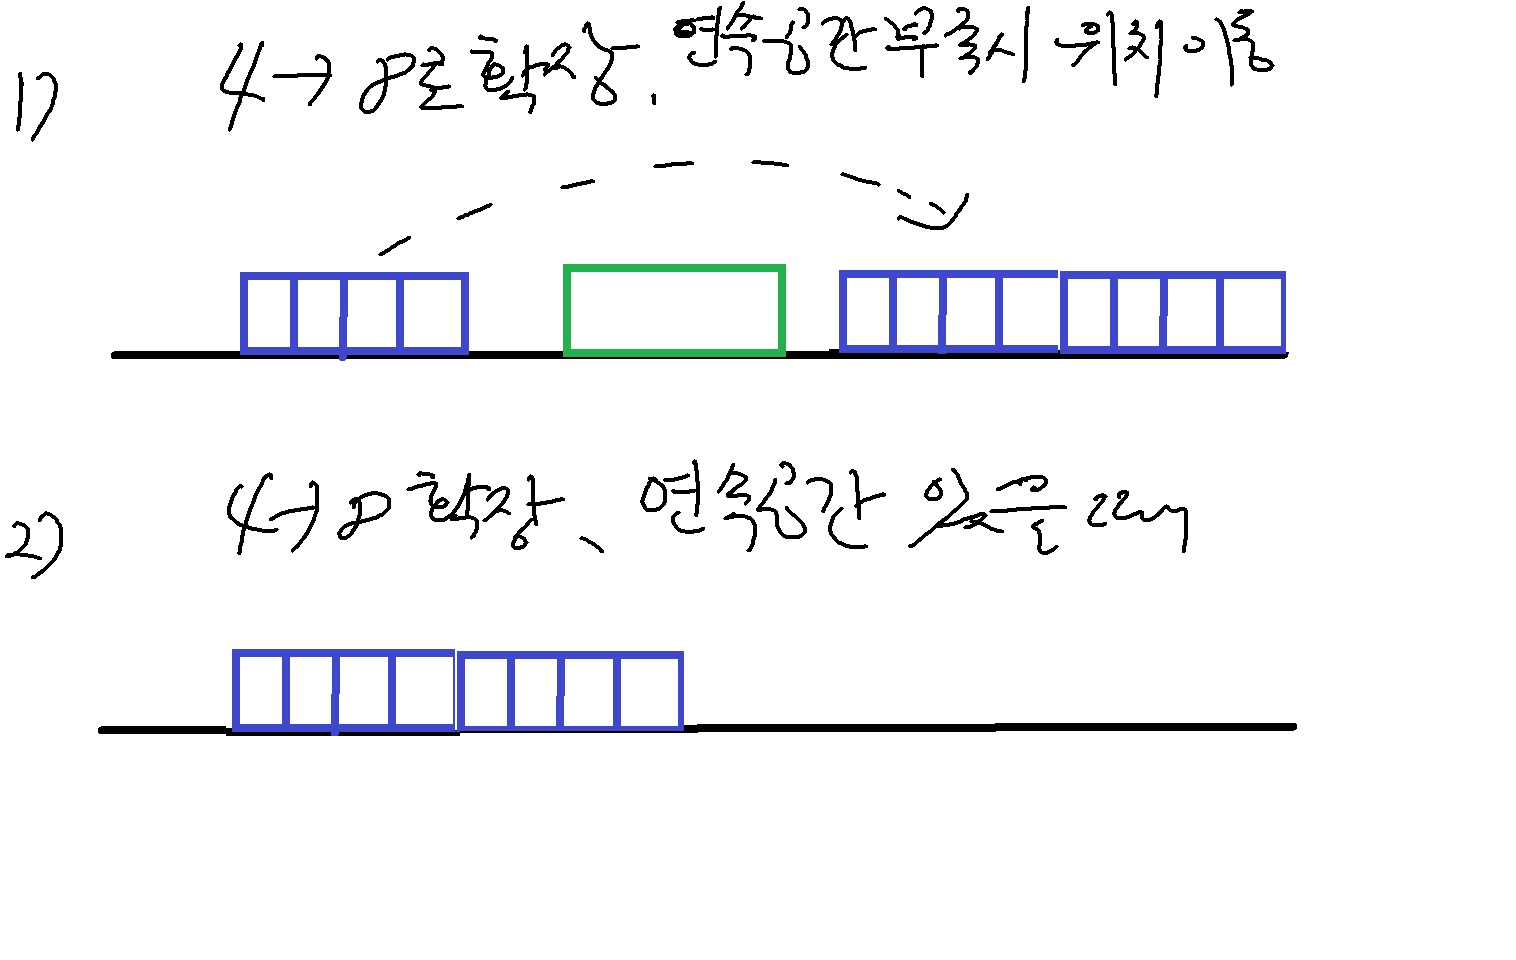 1) 4→8로 확장. 연속공간부족시 위치이동
2) 4→8 확장、 연속공간 있을 때